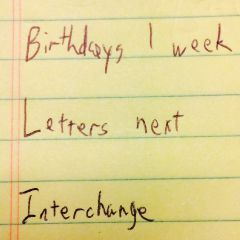 Birthdays 1 week
Letters next
Interchange